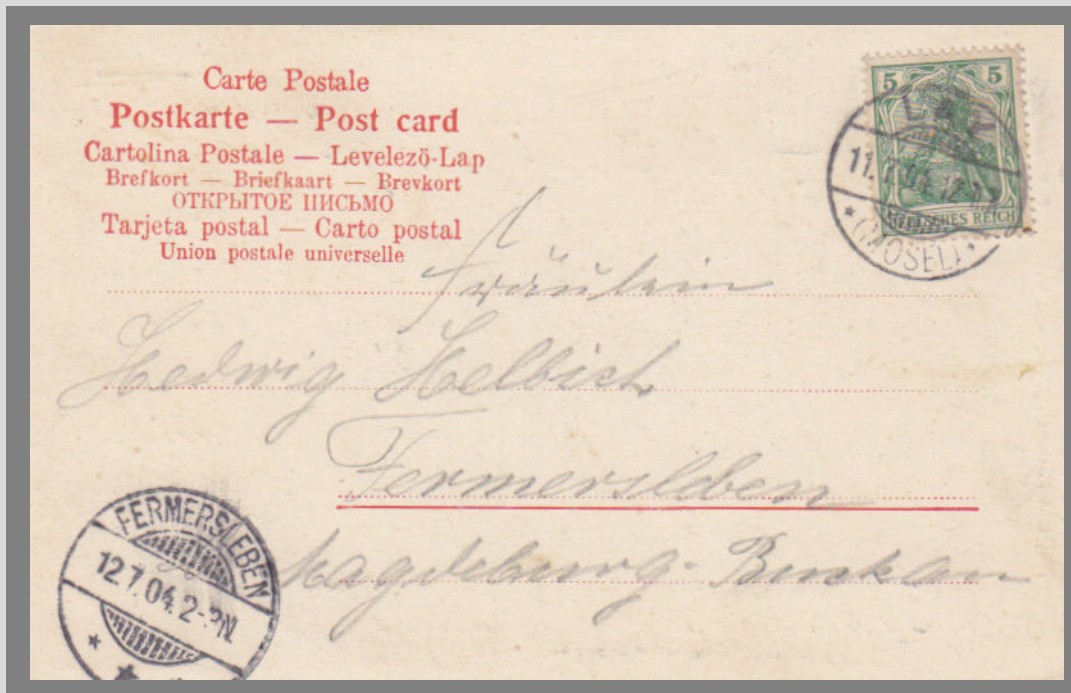 Carte Postale
Postkarte — Post card
Cartolina Postale — Levelező-Lap
Brefkort — Briefkaart — Brevkort
ОТКРЫТОЕ ПИСЬМО
Tarjeta postal — Carto postal
Union postale universelle
5 5
DEUTSCHES REICH
(MOSEL)
Fräulein
Hedwig Helbich
Fermersleben
Magdeburg-Buckau
FERMERSLEBEN
12.7.04.2-3N.